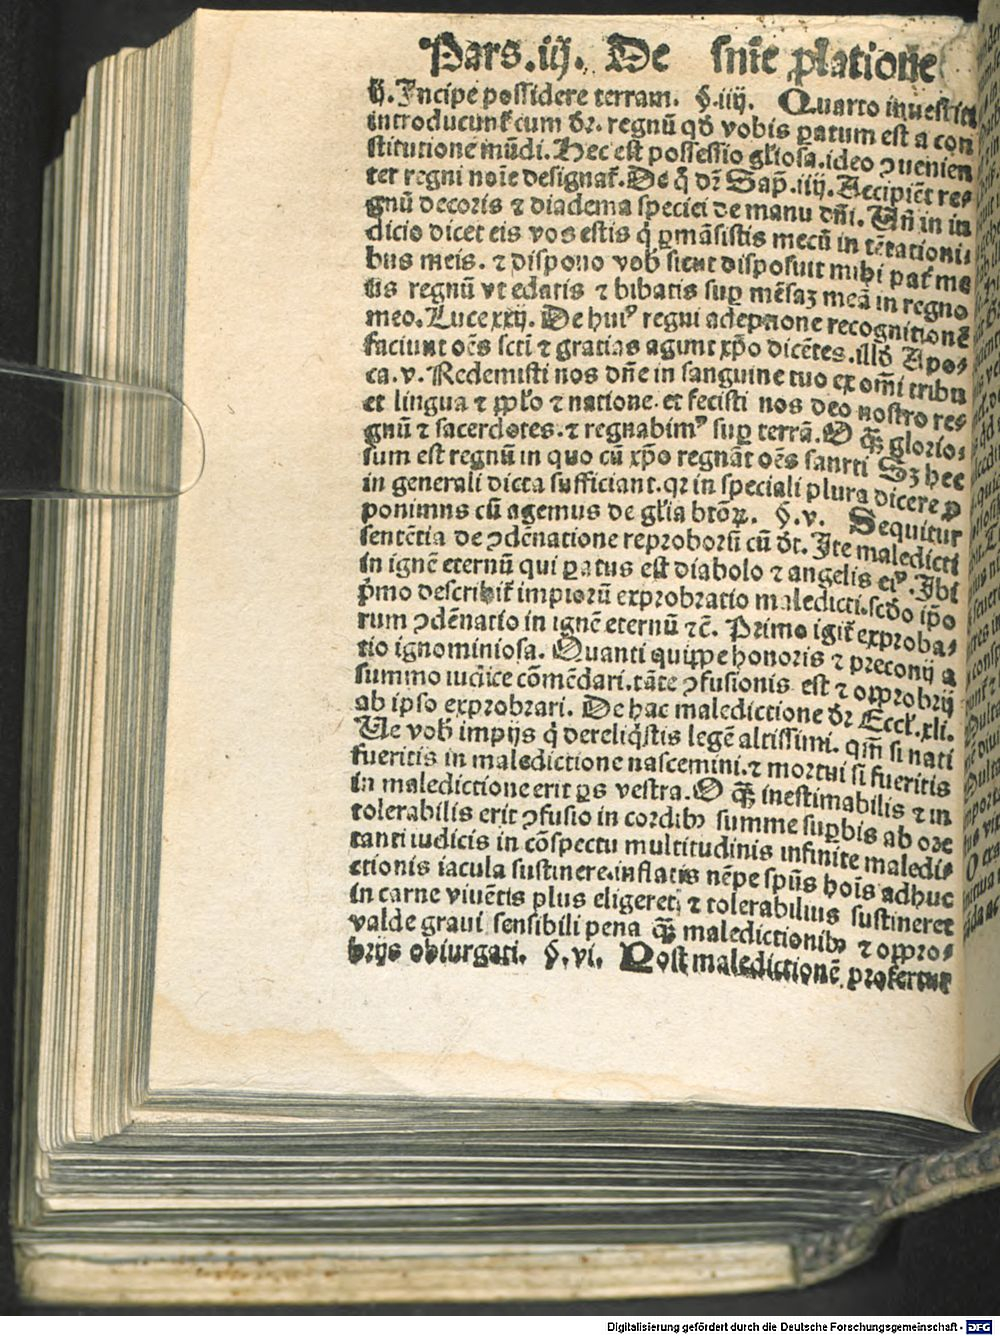 Pars.iij. De sniẽ ꝓlatione
ij. Incipe possidere terram. §.iiij. Quarto inuestiti
introducunt᷑ cum dr̃. regnũ qđ vobis ꝑatum est a con
stitutione mũdi. Hec est possessio gľiosa.ideo ꝯuenien
ter regni noĩe designat᷑. De q̊ dr̃ Sap̃.iiij. Accipiẽt re⸗
gnũ decoris ⁊ diadema speciei de manu dñi. Vñ in iu
dicio dicet eis vos estis q̇ ꝑmãsistis mecũ in tẽtationi⸗
bus meis. ⁊ dispono vob̃ sicut disposuit mihi pat᷑ me
us regnũ vt edatis ⁊ bibatis suꝑ mẽsaꝫ meã in regno
meo. Luce xxij. De huiꝰ regni adeptione recognitionẽ
faciunt oẽs scti ⁊ gratias agunt xp̃o dicẽtes.illđ Apo⸗
ca.v. Redemisti nos dñe in sanguine tuo ex om̃i tribu
et lingua ⁊ ꝓpľo ⁊ natione. et fecisti nos deo nostro re⸗
gnũ ⁊ sacerdotes.⁊ regnabimꝰ suꝑ terrã. O q̃ꝫ glorio⸗
sum est regnũ in quo cũ xp̃o regnãt oẽs sancti Sꝫ hec
in generali dicta sufficiant.qꝛ in speciali plura dicere ꝓ
ponimus cũ agemus de gľia btõꝝ. §.v. Sequitur
sentẽtia de ꝯdẽnatione reproborũ cũ dt̃. Ite maledicti
in ignẽ eternũ qui ꝑatus est diabolo ⁊ angelis eiꝰ. Ibi
p̃mo describit᷑ impiorũ exprobratio maledicti.scđo ip̃o
rum ꝯdẽnatio in ignẽ eternũ ⁊c̃. Primo igit᷑ exproba⸗
tio ignominiosa. Quanti quippe honoris ⁊ preconij a
summo iudice cõmẽdari.tãte ꝯfusionis est ⁊ opprobrij
ab ipso exprobrari. De hac maledictione dr̃ Eccľ.xli.
Ue vob̃ impijs q̇ dereliq̇stis legẽ altissimi. qm̃ si nati
fueritis in maledictione nascemini.⁊ mortui si fueritis
in maledictione erit ꝑs vestra. O q̃ꝫ inestimabilis ⁊ in
tolerabilis erit ꝯfusio in cordibꝫ summe suꝑbis ab ore
tanti iudicis in cõspectu multitudinis infinite maledi⸗
ctionis iacula sustinere.inflatis nẽpe spũs hoĩs adhuc
in carne viuẽtis plus eligeret ⁊ tolerabilius sustineret
valde graui sensibili pena q̃ꝫ maledictionibꝫ ⁊ oppro⸗
brijs obiurgati. §.vi. Post maledictionẽ profertur
Digitalisierung gefördert durch die Deutsche Forschungsgemeinschaft - DFG